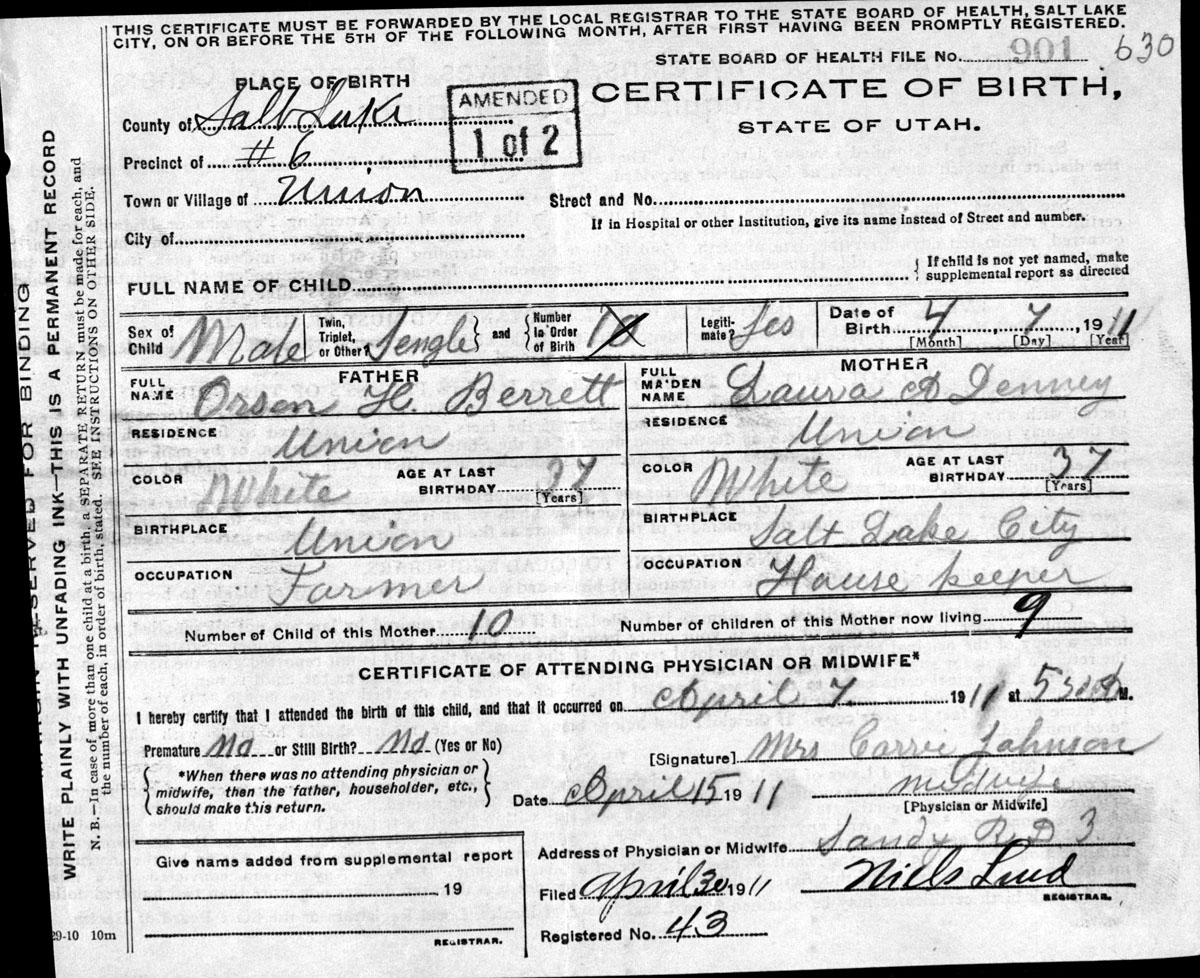 THIS CERTIFICATE MUST BE FORWARDED BY THE LOCAL REGISTRAR TO THE STATE BOARD OF HEALTH, SALT LAKE
CITY, ON OR BEFORE THE 5TH OF THE FOLLOWING MONTH, AFTER FIRST HAVING BEEN PROMPTLY REGISTERED.
STATE BOARD OF HEALTH FILE No. 901 630
PLACE OF BIRTH
CERTIFICATE OF BIRTH,
STATE OF UTAH.
AMENDED
1 of 2
County of Salt Lake
Precinct of #6
Town or Village of Union
Street and No.
If in Hospital or other Institution, give its name instead of Street and number.
City of
FULL NAME OF CHILD
If child is not yet named, make
supplemental report as directed
Sex of Child Male
Twin, Triplet, or Other? Sengle
and Number in Order of Birth 10
Legiti-mate? Yes
Date of Birth 4 7, 1911
[Month] [Day] [Year]
FATHER
FULL NAME Orson H. Berrett
RESIDENCE Union
COLOR White
AGE AT LAST BIRTHDAY 37
[Years]
BIRTHPLACE Union
OCCUPATION Farmer
MOTHER
FULL MAIDEN NAME Laura A Denney
RESIDENCE Union
COLOR White
AGE AT LAST BIRTHDAY 37
[Years]
BIRTHPLACE Salt Lake City
OCCUPATION House keeper
Number of Child of this Mother 10
Number of children of this Mother now living 9
CERTIFICATE OF ATTENDING PHYSICIAN OR MIDWIFE*
I hereby certify that I attended the birth of this child, and that it occurred on April 7. 1911 at 530 M.
Premature No or Still Birth? No (Yes or No)
*When there was no attending physician or
midwife, then the father, householder, etc.,
should make this return.
[Signature] Mrs Carrie Johnson
Date April 15 1911
Midwife
[Physician or Midwife]
Address of Physician or Midwife Sandy R D 3
Give name added from supplemental report
19
REGISTRAR.
Filed April 30 1911
Niels Lind
REGISTRAR.
Registered No. 43
29-10 10m
MARGIN RESERVED FOR BINDING
WRITE PLAINLY WITH UNFADING INK—THIS IS A PERMANENT RECORD
N. B.—In case of more than one child at a birth, a SEPARATE RETURN must be made for each, and
the number of each, in order of birth, stated. SEE INSTRUCTIONS ON OTHER SIDE.